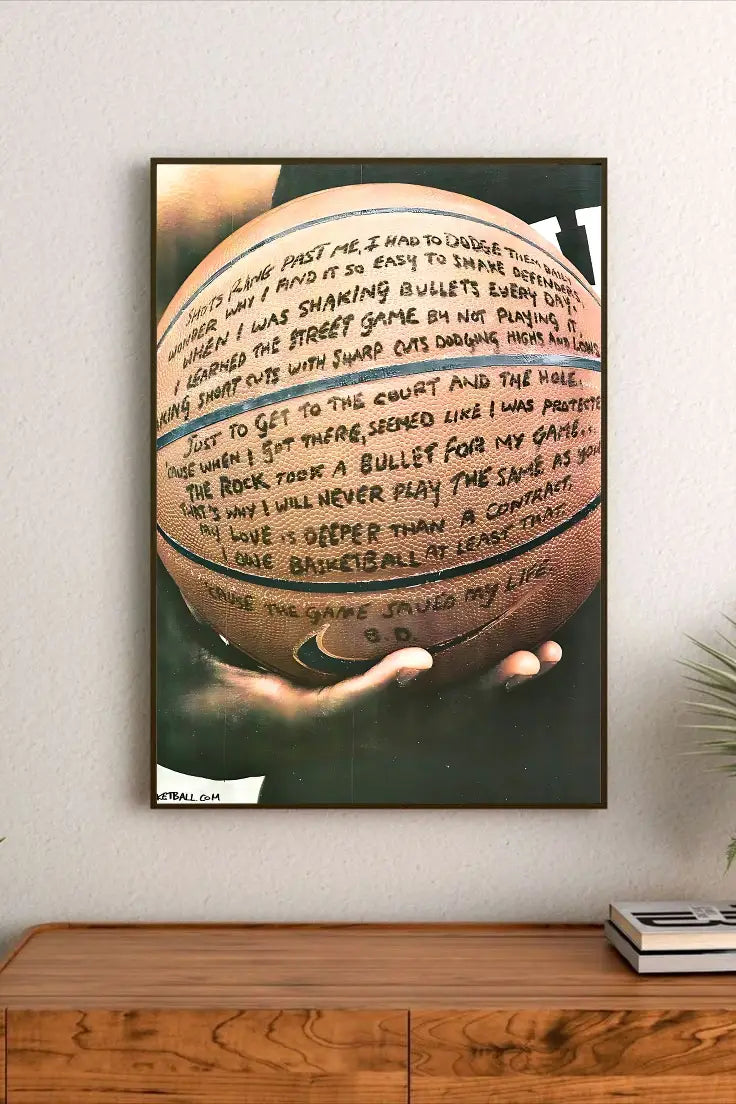 SHOTS RANG PAST ME, I HAD TO DODGE THEM DAILY
WONDER WHY I FIND IT SO EASY TO SHAKE DEFENDERS,
WHEN I WAS SHAKING BULLETS EVERY DAY,
I LEARNED THE STREET GAME BY NOT PLAYING IT.
KING SHORT CUTS WITH SHARP CUTS DODGING HIGHS AND LOWS
JUST TO GET TO THE COURT AND THE HOLE.
'CAUSE WHEN I GOT THERE, SEEMED LIKE I WAS PROTECTE
THE ROCK TOOK A BULLET FOR MY GAME...
THAT'S WHY I WILL NEVER PLAY THE SAME AS YOU
MY LOVE IS DEEPER THAN A CONTRACT.
I OWE BASKETBALL AT LEAST THAT.
'CAUSE THE GAME SAVED MY LIFE.
B.D.
KETBALL.COM